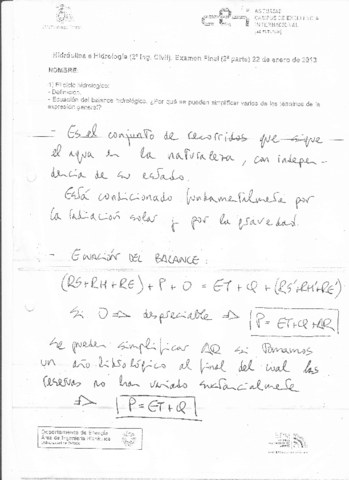 ASTURIAS
CAMPUS DE EXCELENCIA
INTERNACIONAL
Hidráulica e Hidrología (2º Ing. Civil). Examen Final (2ª parte) 22 de enero de 2013
NOMBRE:
1) El ciclo hidrológico:
- Definición.
- Ecuación del balance hidrológico. ¿Por qué se pueden simplificar varios de los términos de la
expresión general?
- Es el conjunto de recorridos que sigue
el agua en la naturaleza, con indepen-
dencia de su estado.
Está condicionado fundamentalmente por
la radiación solar y por la gravedad.
- ECUACIÓN DEL BALANCE:
(RS+RH+RE)+P+O = ET+Q+(RS'+RH'+RE')
Si O => despreciable => P=ET+Q+ΔR
Se pueden simplificar ΔR si tomamos
un año hidrológico al final del cual las
reservas no han variado sustancialmente
=> P=ET+Q
Departamento de Energía
Área de Ingeniería Hidráulica